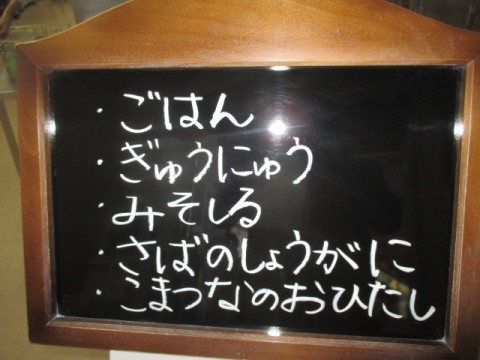 ・ごはん
・ぎゅうにゅう
・みそしる
・さばのしょうがに
・こまつなのおひたし